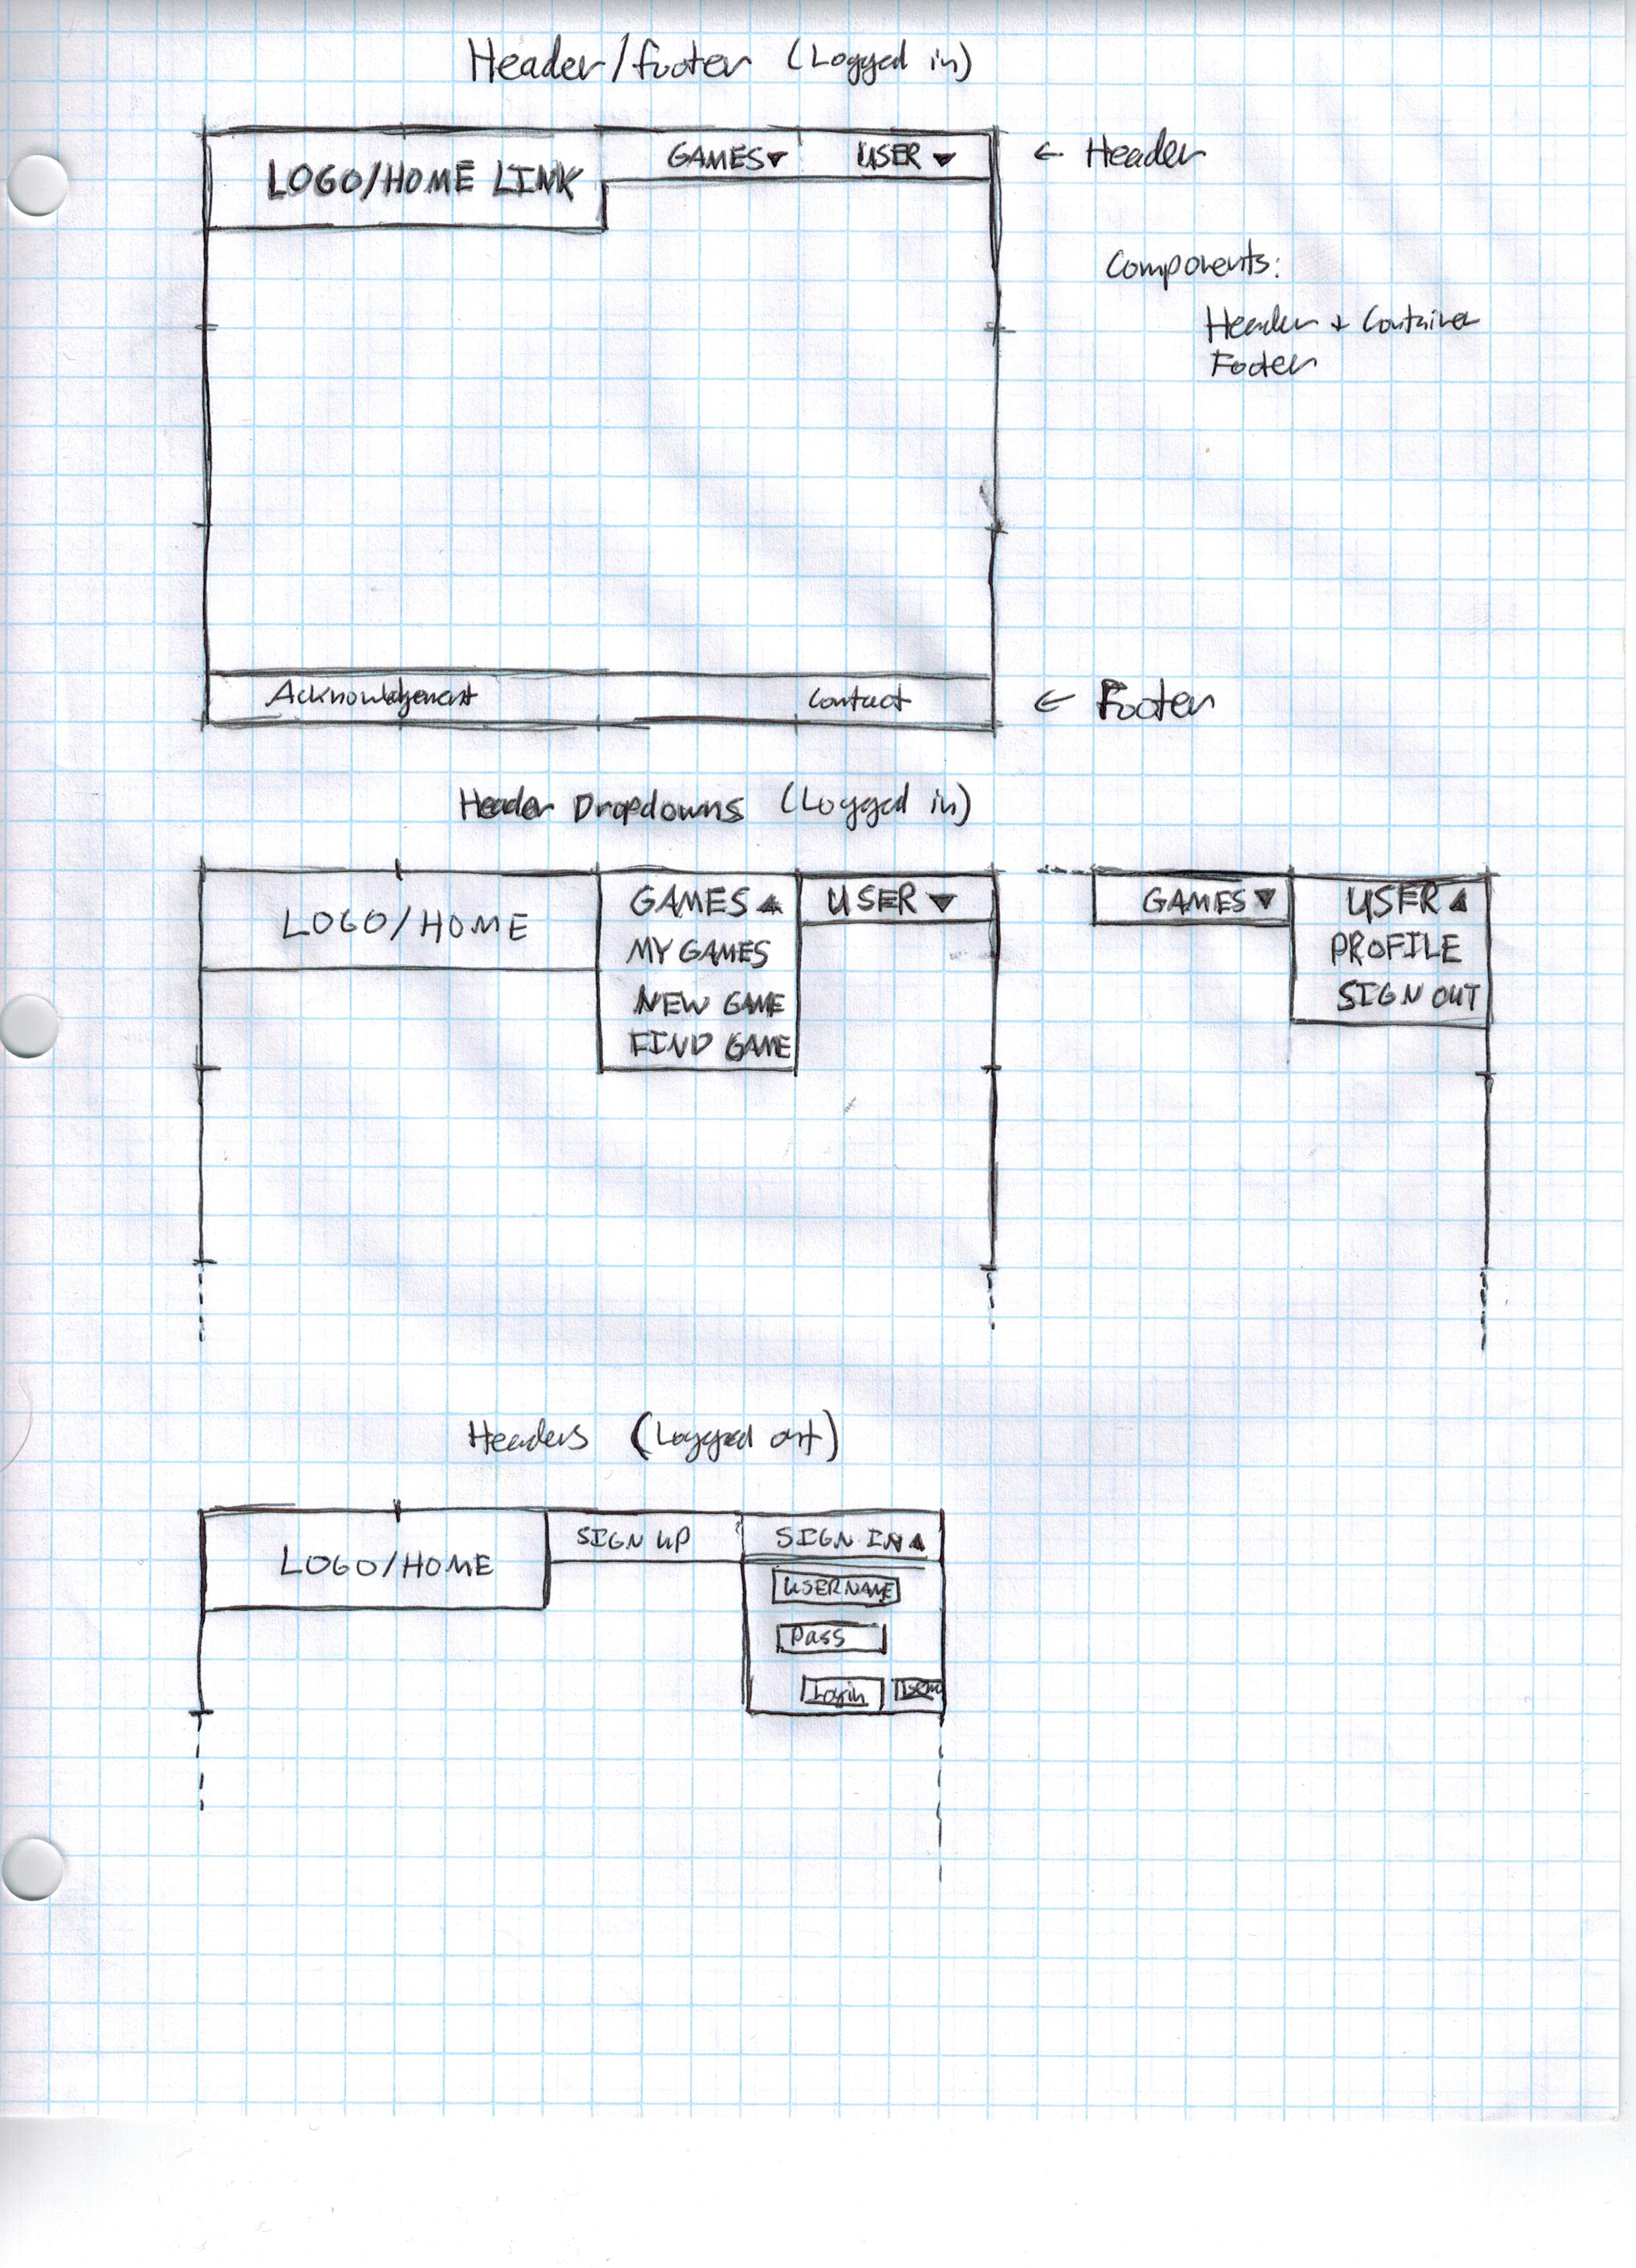 Header/footer (Logged in)
LOGO/HOME LINK
GAMES▼ USER ▼
← Header
Components:
Header + Container
Footer
Acknowledgement Contact
← Footer
Header Dropdowns (Logged in)
LOGO/HOME
GAMES▲
MY GAMES
NEW GAME
FIND GAME
USER ▼
GAMES▼
USER▲
PROFILE
SIGN OUT
Headers (Logged out)
LOGO/HOME
SIGN UP
SIGN IN▲
USERNAME
Pass
Login